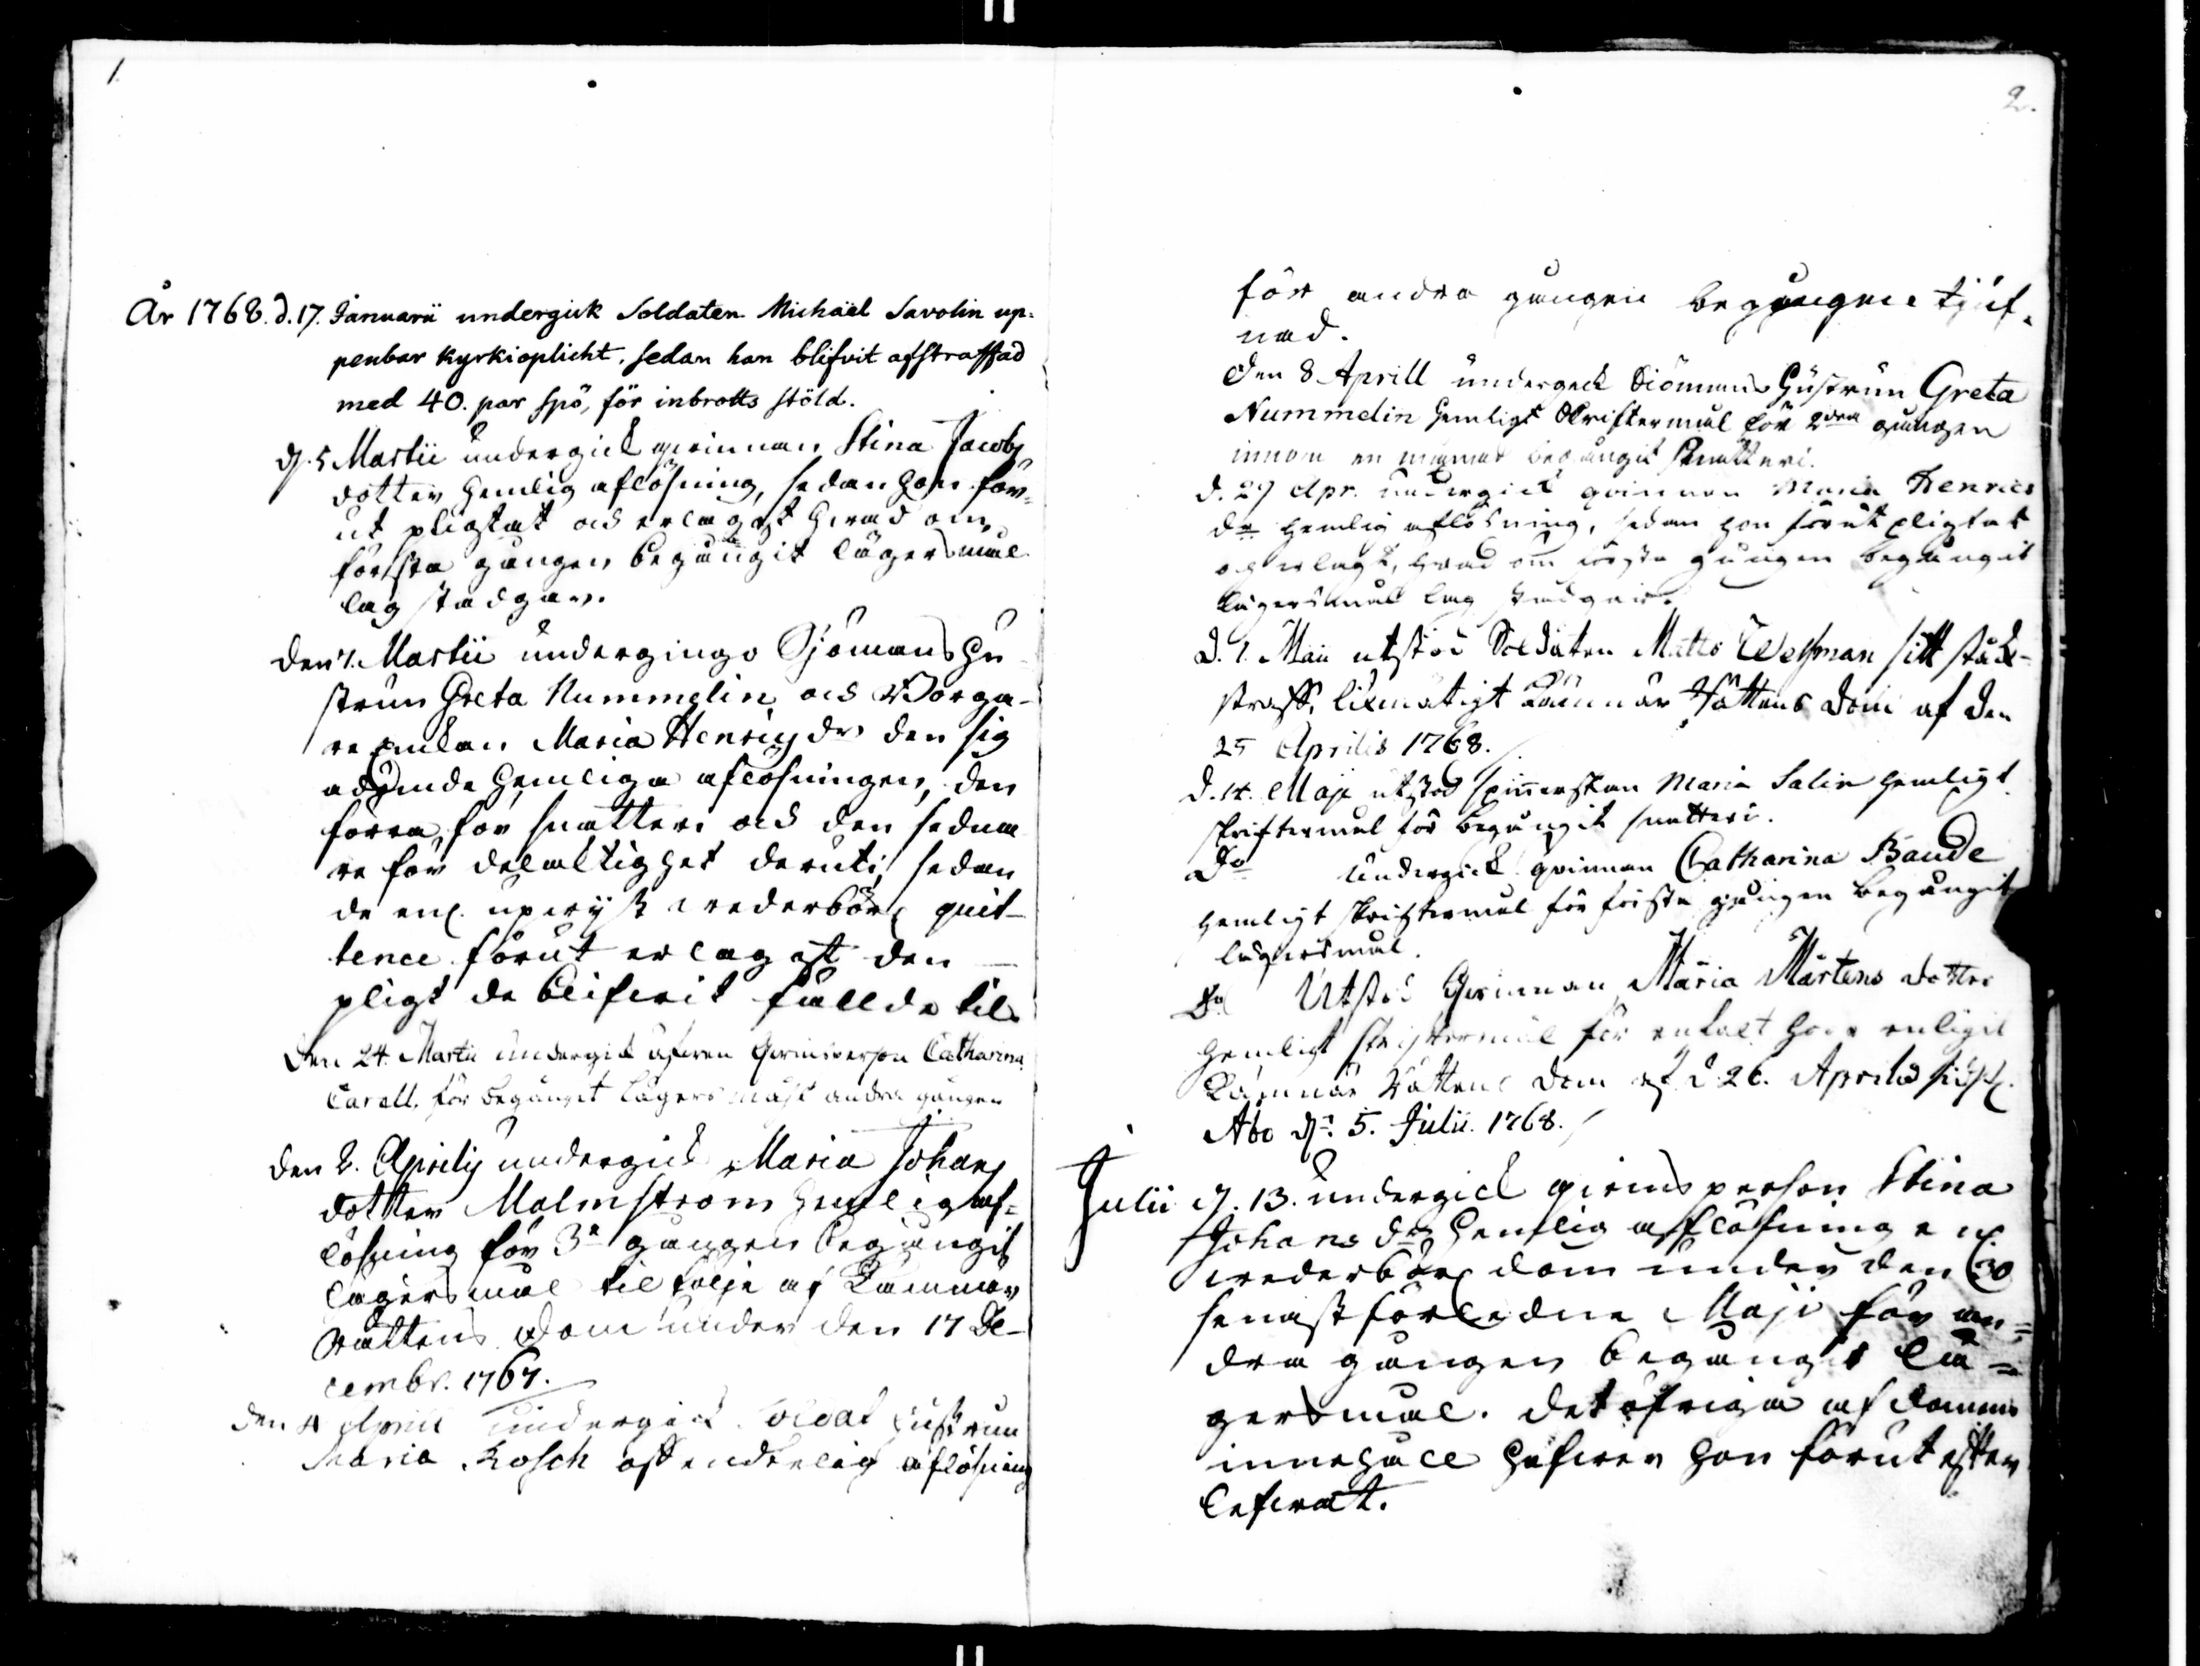 1.
År 1768. d. 17. Januarii undergick Soldaten Michäel Savolin up-
penbar kyrkioplicht, sedan han blifvit afstraffad
med 40. par spö, för inbrotts stöld.
d. 5 Martii undergick qvinnan Stina Jacobs
dotter hemlig aflösning, sedan hon för-
ut pligtat och erlagt hvad om
första gången begångit lägersmål
lag stadgar.
den 7. Martii undergingo Sjömans hu-
strun Greta Nummelin och Borga-
re Maria Henricsdr den sig
hemliga aflösningen, den
förra för snatteri och den sedna-
re för delaktighet deruti, sedan
de enl. upvist vederbörl. quit-
tence förut erlagt den
pligt de blifvit fällde til.
den 24. Martii undergick qvinsperson Catharina
Carall. för begånget lägersmål andra gången
den 2. Aprilis undergick Maria Johans
dotter Malmström hemlig af-
lösning för 3e gången begångit
lägersmål til följe af Kämnärs
Rättens Dom under den 17 De-
cembr. 1767.
den 4 April undergick Soldat hustrun
Maria Kosch offendtelig aflösning
2.
för andra gången begången tjuf-
nad.
den 8 Aprill undergick Siömans Hustrun Greta
Nummelin hemligt Skriftermål för 2dra gången
innom en månad begångit snatteri.
d. 29 Apr. undergick qvinnan Maria Henrics
dr hemlig aflösning, sedan hon förut pligtat
och erlagt, hvad om första gången begångit
lägersmål lag stadgar.
d. 1. Maii utstod Soldaten Matts Wesman sitt
straff, likmätigt Kämnärs Rättens Dom af den
25 Aprilis 1768.
d. 14. Maji utstod spinnerskan Maria Salin hemligt
skriftermål för begångit snatteri.
Do undergick qvinnan Catharina Baude
hemligt skriftermål för första gången begångit
lägersmål.
Do Utstod Qvinnan Maria Mårtens dotter
hemligt skriftermål för enkelt hor enligit
Kämnärs Rättens dom af d. 26. Aprilis sistl.
Åbo dn. 5. Julii. 1768.
Julii d. 13. undergick qvinsperson Stina
Johansdr hemlig aflösning enl.
vederbörl. dom under den 30
senast förledne Maji för an-
dra gången begångit lä-
gersmål. det öfriga af domens
innehåll hafver hon förut efter
lefvat.